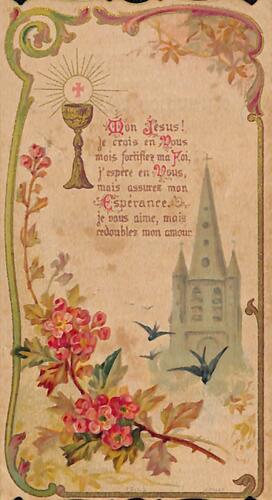 Mon Jésus!
je crois en Vous
mais fortifiez ma Foi,
j'espère en Vous,
mais assurez mon
Espérance.
je vous aime, mais
redoublez mon amour